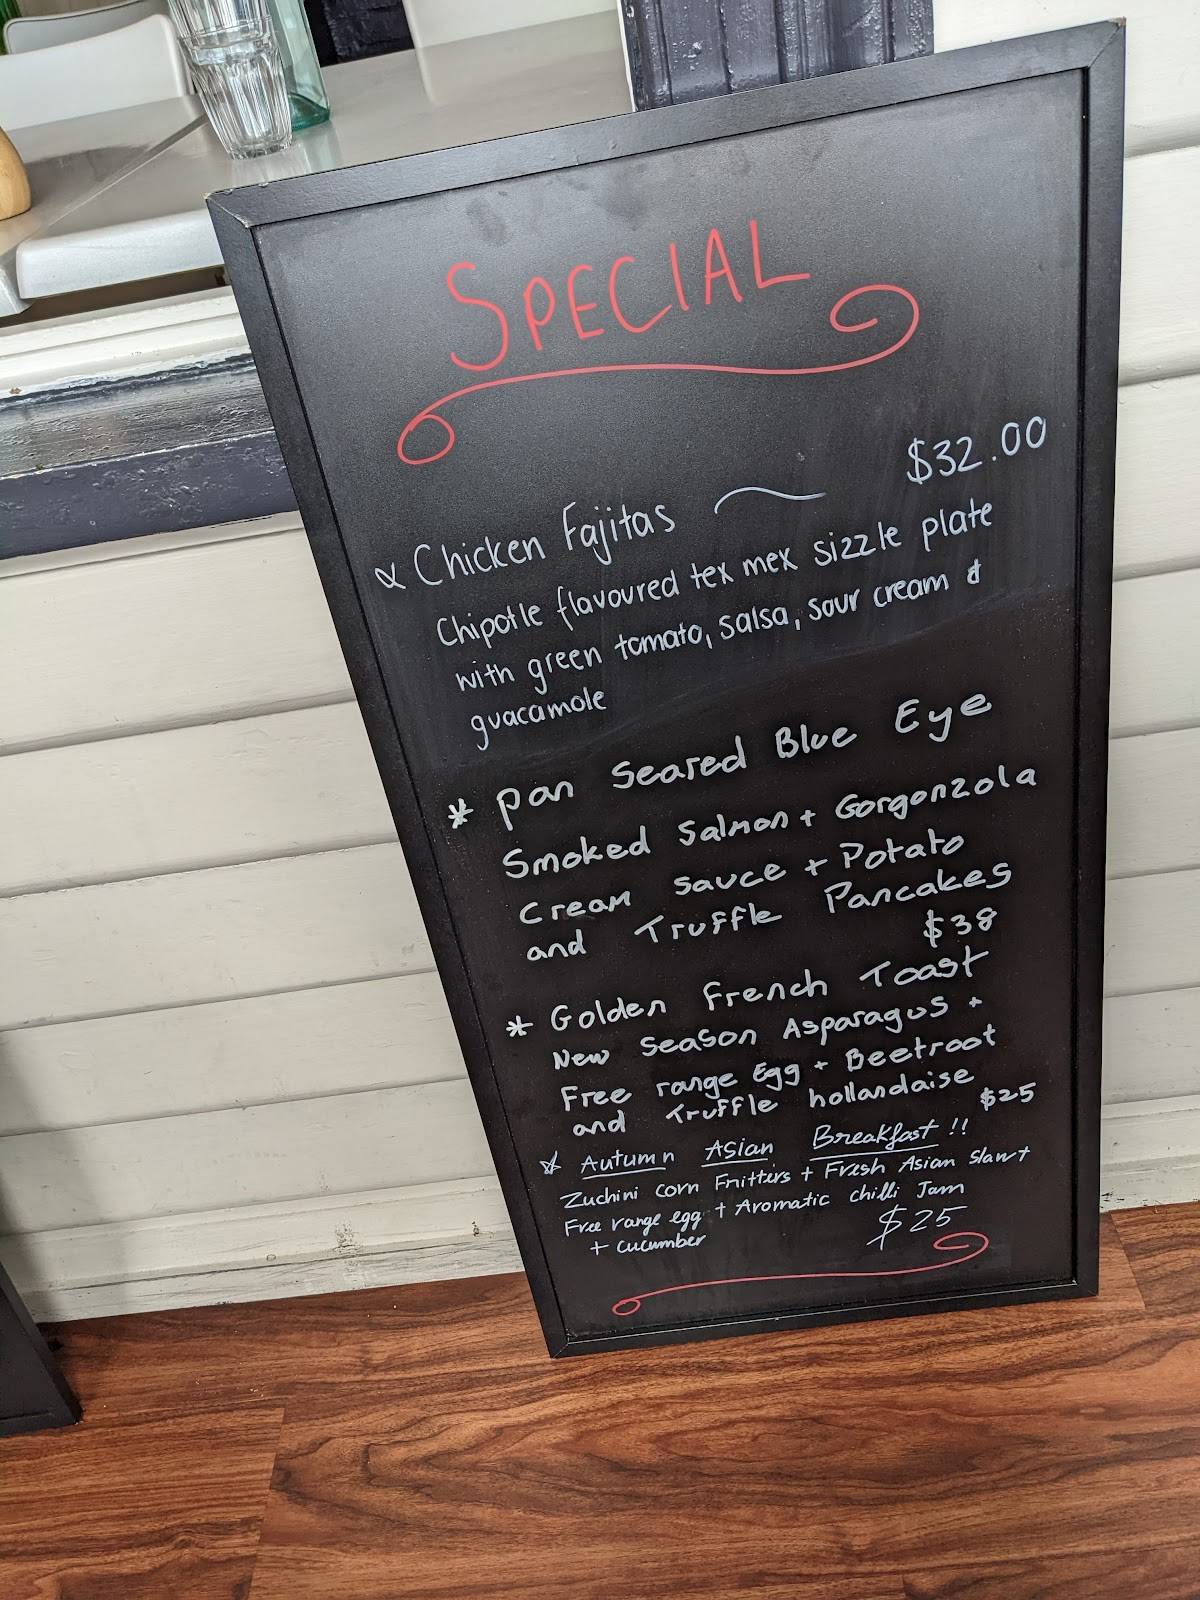 SPECIAL
Chicken Fajitas $32.00
Chipotle flavoured tex mex sizzle plate
with green tomato, salsa, sour cream &
guacamole
* Pan Seared Blue Eye
Smoked Salmon + Gorgonzola
Cream Sauce + Potato
and Truffle Pancakes
$38
* Golden French Toast
New Season Asparagus +
Free range Egg + Beetroot
and Truffle hollandaise $25
* Autumn Asian Breakfast!!
Zuchini corn Fritters + Fresh Asian Slaw +
Free range egg + Aromatic chilli Jam
+ cucumber $25